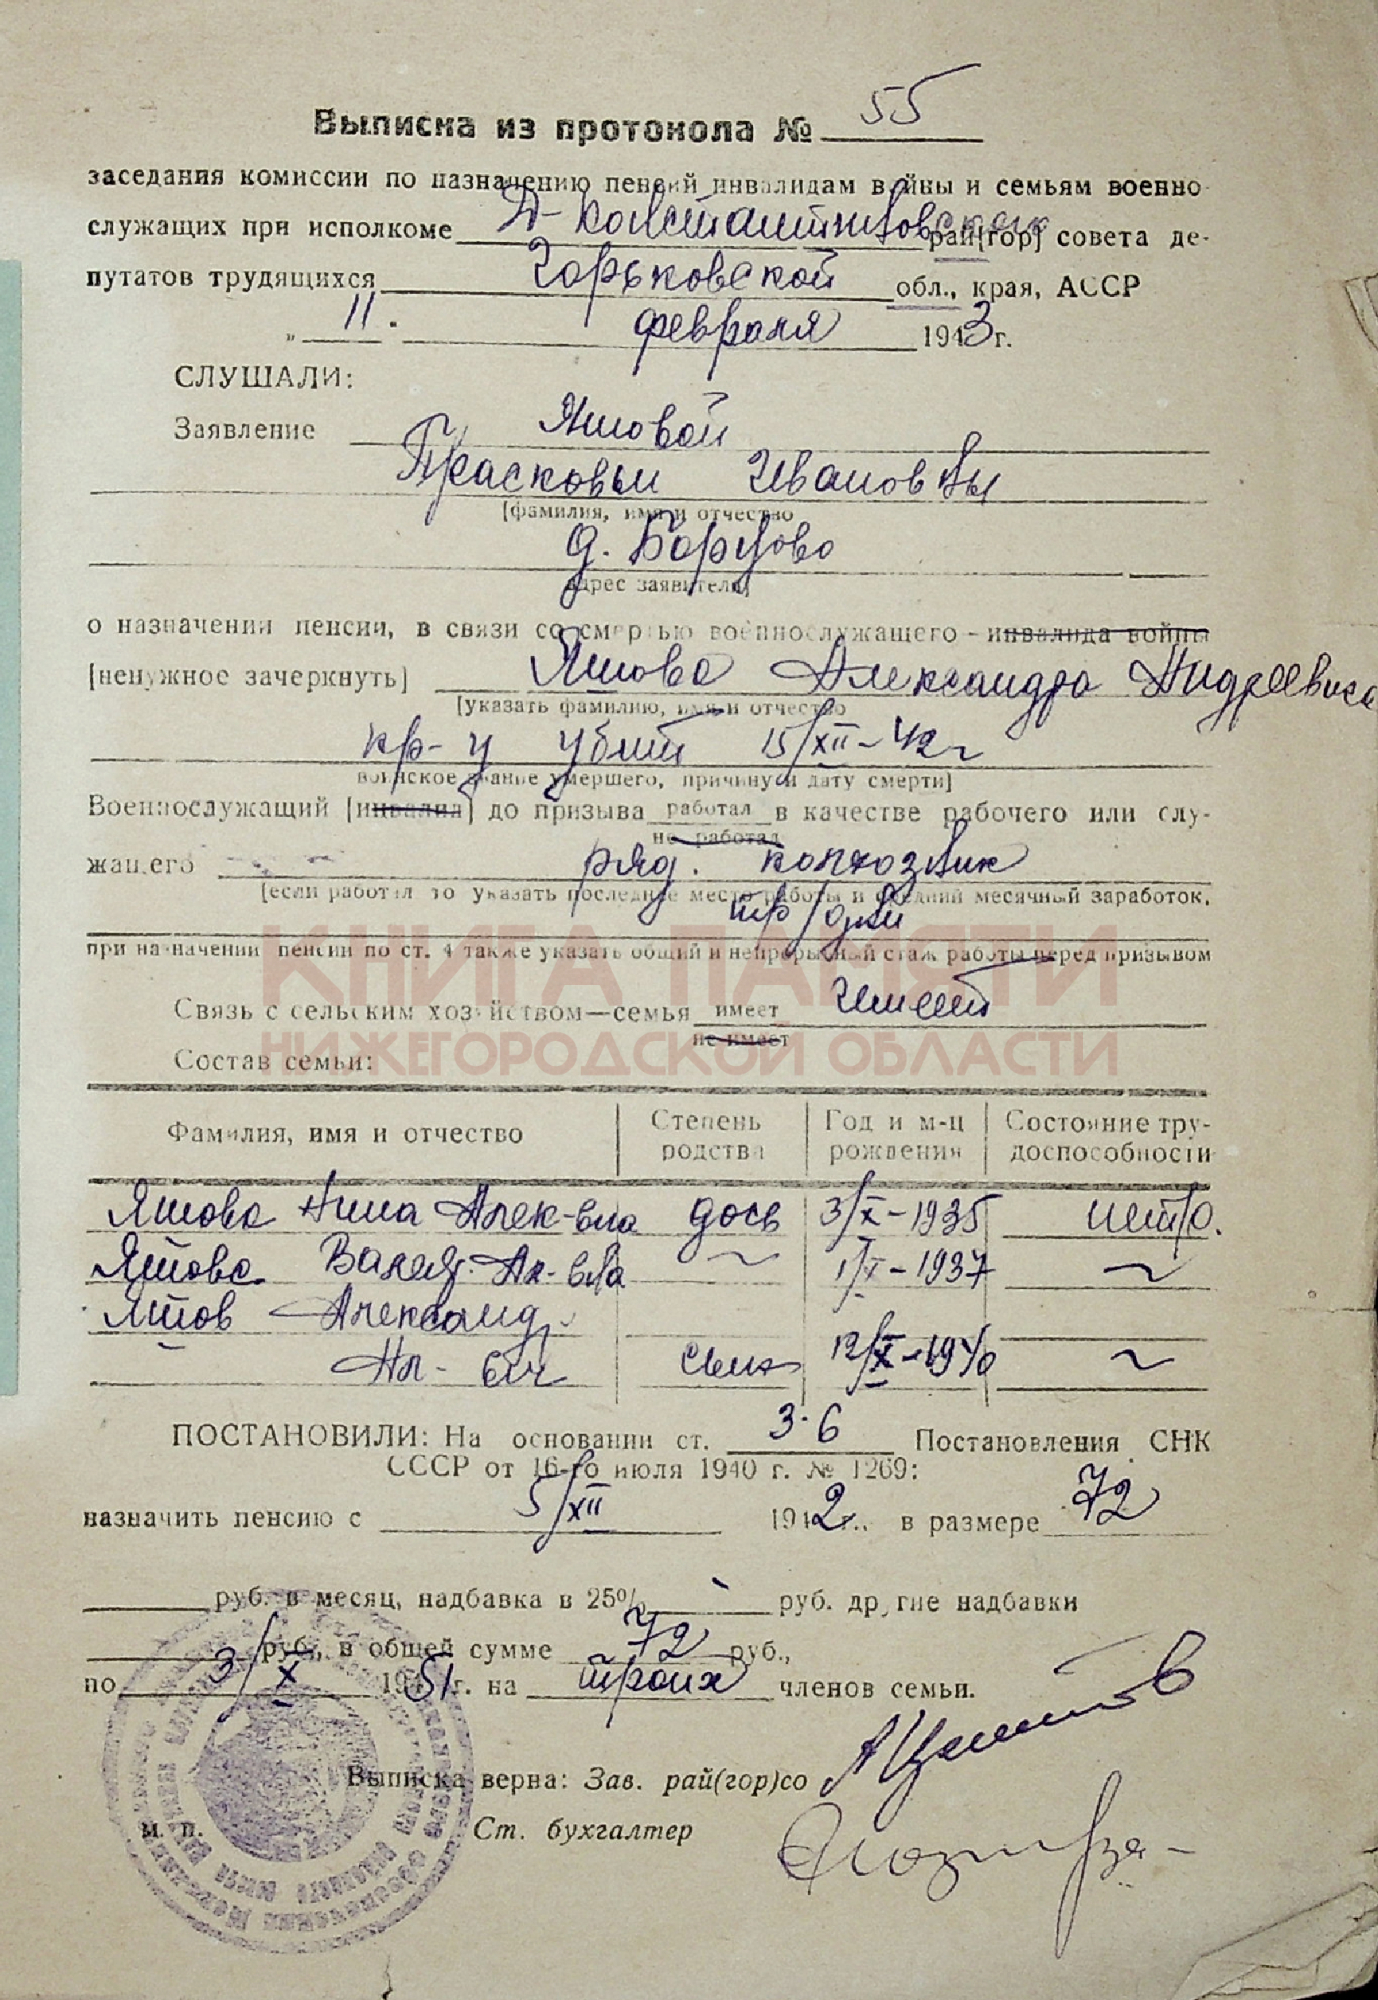 Выписка из протокола № 55
заседания комиссии по назначению пенсий инвалидам войны и семьям военно-
служащих при исполкоме Д-Константиновском рай[гор] совета де-
путатов трудящихся Горьковской обл., края, АССР
„ 11 " февраля 1943 г.
СЛУШАЛИ:
Заявление Яшовой
Прасковьи Ивановны
[фамилия, имя и отчество
д. Борцово
адрес заявителя]
о назначении пенсии, в связи со смертью военнослужащего - инвалида войны
[ненужное зачеркнуть] Яшова Александра Андреевича
[указать фамилию, имя и отчество
кр-ц убит 15/XII-42 г
воинское звание умершего, причину и дату смерти]
Военнослужащий [инвалид] до призыва работал в качестве рабочего или слу-
не работал
жащего ряд. колхозник
[если работал то указать последнее место работы и средний месячный заработок,
тр/дни
при назначении пенсии по ст. 4 также указать общий и непрерывный стаж работы перед призывом
КНИГА ПАМЯТИ
Связь с сельским хозяйством—семья имеет имеет
не имеет
НИЖЕГОРОДСКОЙ ОБЛАСТИ
Состав семьи:
Фамилия, имя и отчество Степень родства Год и м-ц рождения Состояние тру-доспособности
Яшова Нина Алек-вна дочь 3/X-1935 нетр.
Яшова Ал-вна ~ 1/X-1937 ~
Яшов Александ.
Ал-вич сын 12/X-1940 ~
ПОСТАНОВИЛИ: На основании ст. 3-6 Постановления СНК
СССР от 16-го июля 1940 г. № 1269:
назначить пенсию с 5/XII 1942 г., в размере 72
руб. в месяц, надбавка в 25% руб. другие надбавки
руб., в общей сумме 72 руб.,
по 3/X 1951 г. на троих членов семьи.
Выписка верна: Зав. рай(гор)со
м. п. Ст. бухгалтер